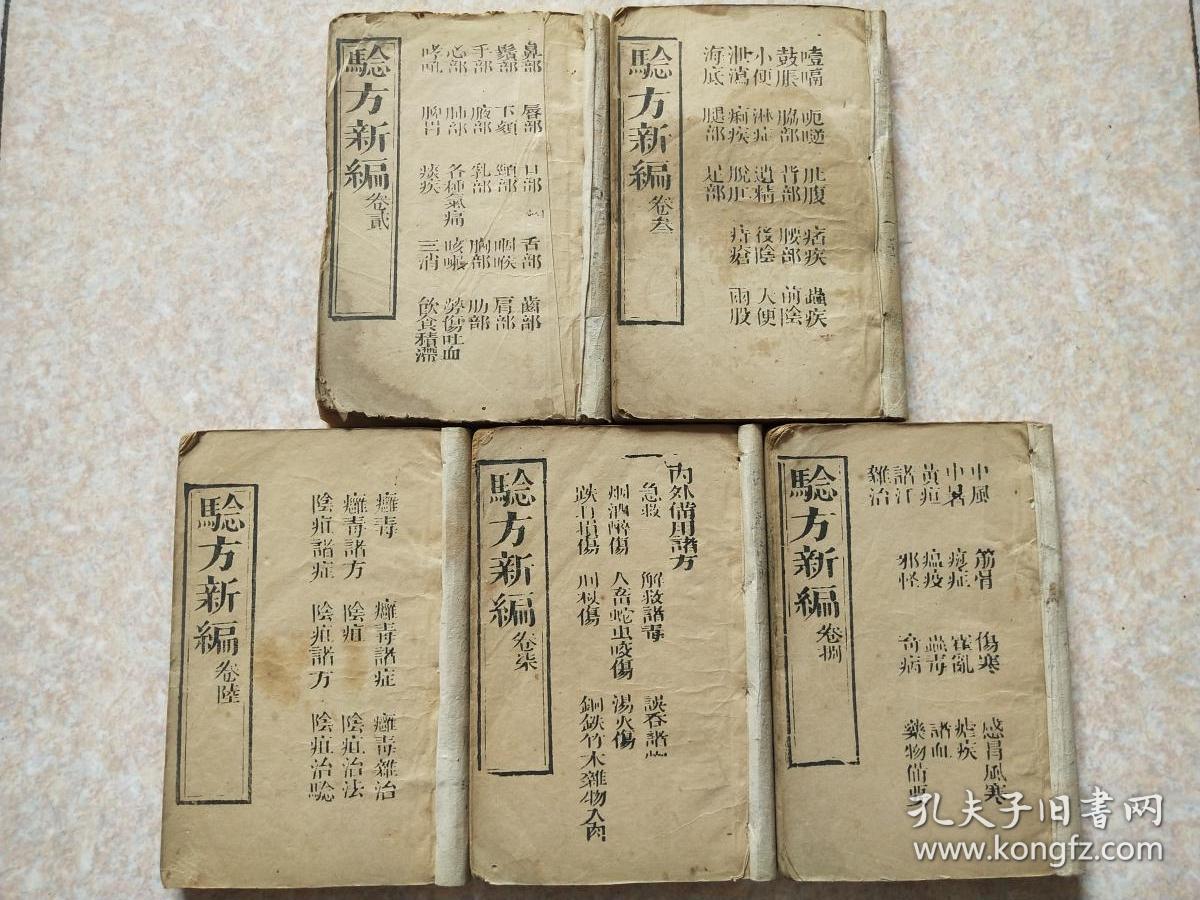 驗方新編 卷貳
鼻部 唇部 口部 舌部 齒部
鬚部 下頦 頸部 咽喉 肩部
手部 腋部 乳部 胸部 肋部
心部 肺部 各種氣痛 咳嗽 勞傷吐血
哮吼 脾胃 痰疾 三消 飲食積滯
驗方新編 卷叁
噎嗝 呃 肚腹 痞疾 蟲疾
鼓脹 脇部 背部 腰部 前陰
小便 淋症 遺精 後陰 大便
泄瀉 痢疾 脫肛 痔瘡 兩股
海底 腿部 足部
驗方新編 卷陸
癰毒 癰毒諸症 癰毒雜治
癰毒諸方 陰疽 陰疽治法
陰疽諸症 陰疽諸方 陰疽治驗
驗方新編 卷柒
內外備用諸方
急救 解救諸毒 誤吞諸物
烟酒醉傷 人畜蛇虫咬傷 湯火傷
跌打損傷 刑杖傷 銅鉄竹木雜物入肉
驗方新編 卷捌
中風 筋骨 傷寒 感冒風寒
中暑 症 霍亂 瘧疾
黃疸 瘟疫 蟲毒 諸血
諸汗 邪怪 奇病 藥物備要
雜治
孔夫子旧书网
www.kongfz.com